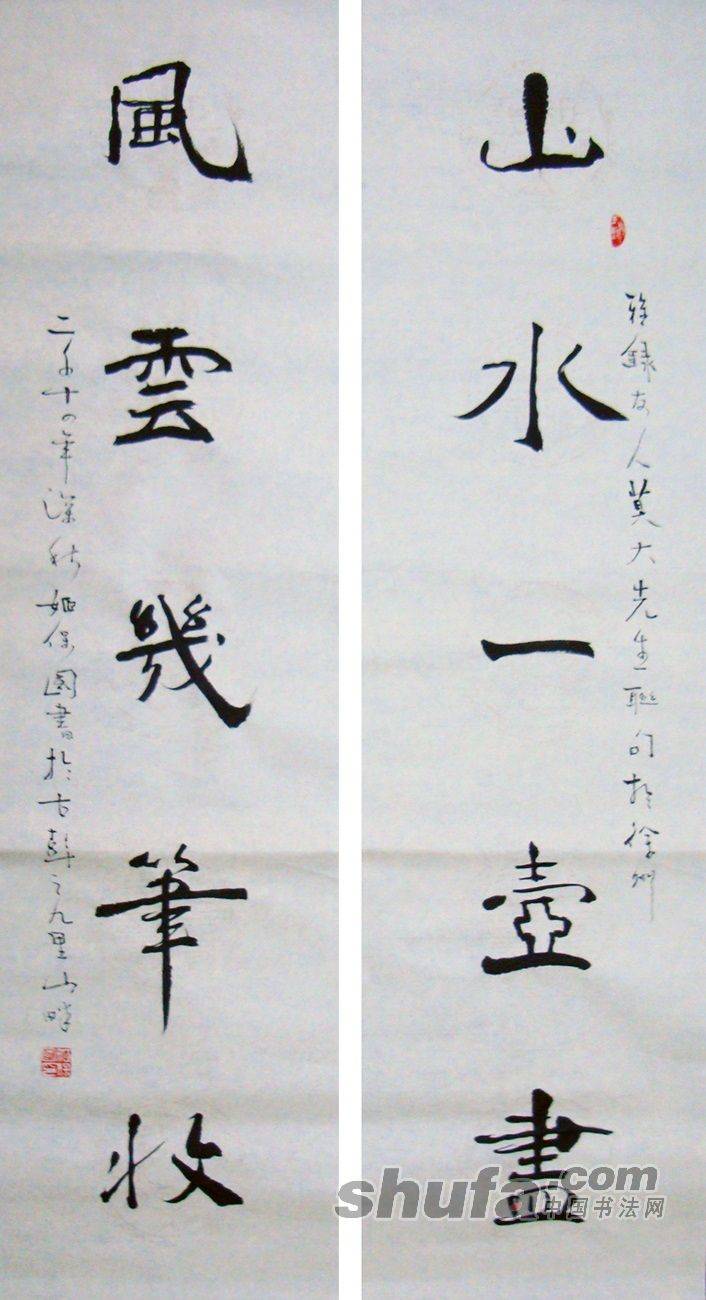 山水一壺盡
雅錄友人莫大先生聯句於徐州
風雲幾筆收
二千十四年深秋姬保國書於古彭之九里山畔
shufa.com
中国书法网